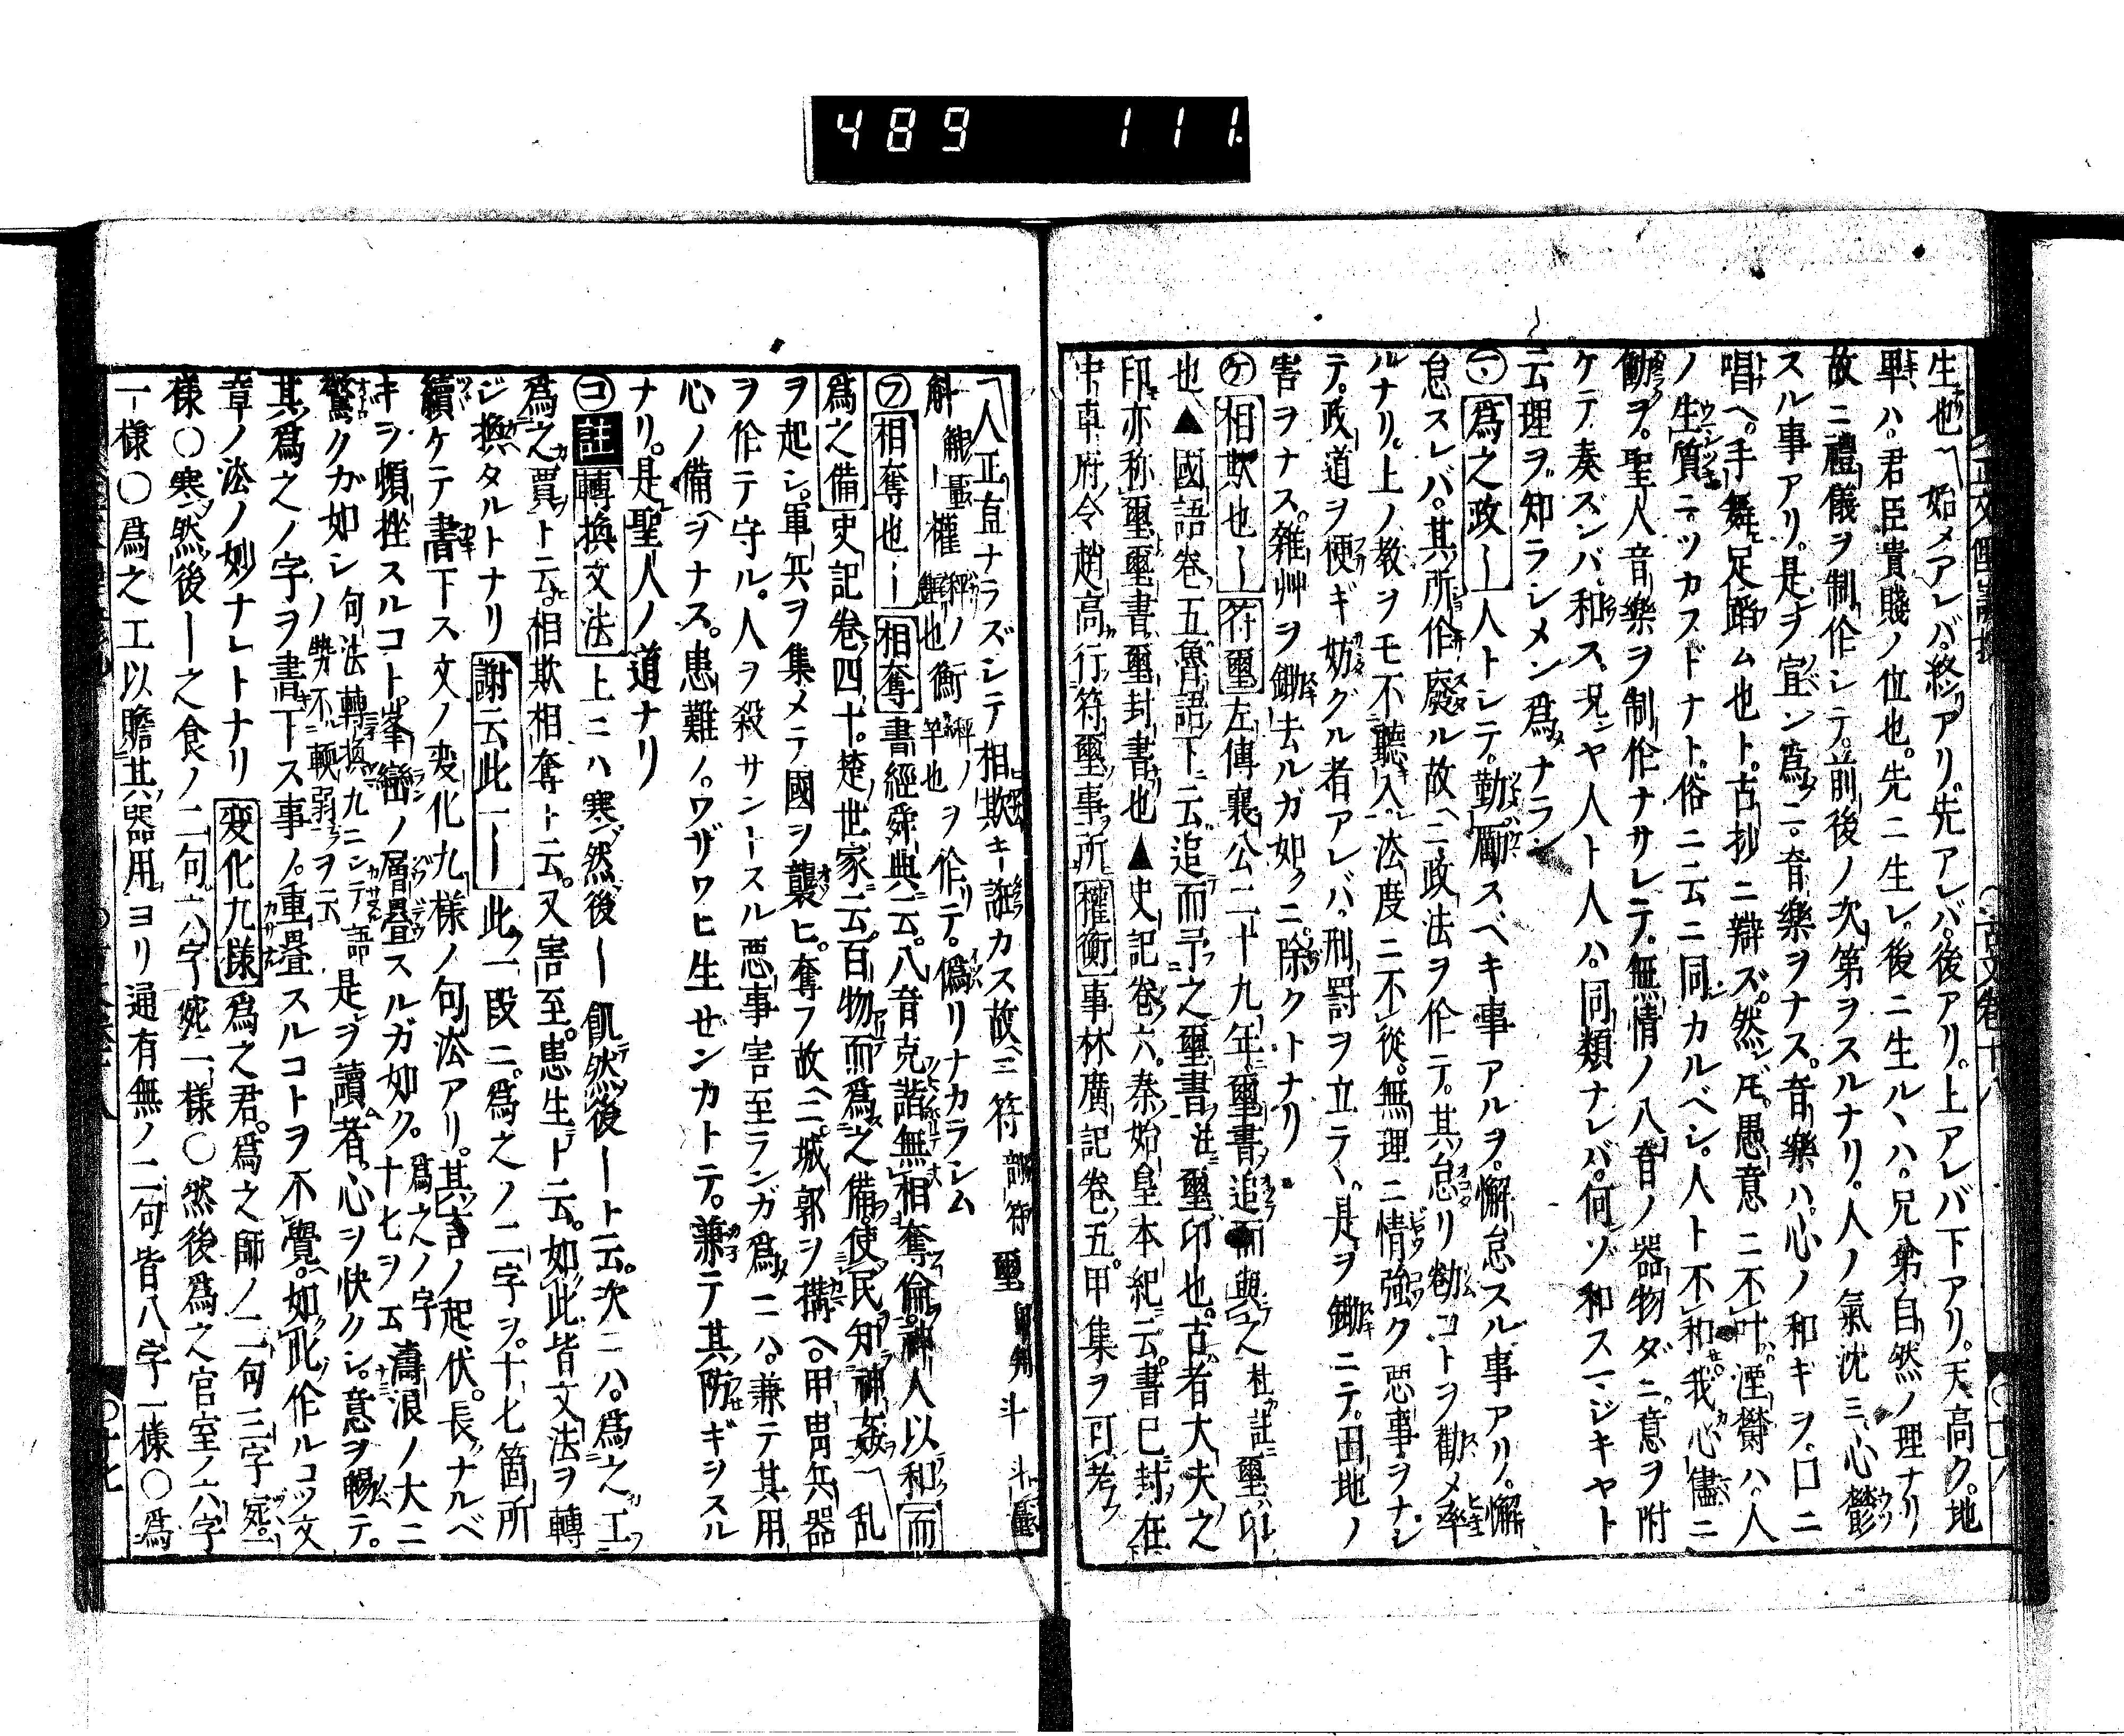 489 111
生也〽始メアレバ終アリ。先アレバ後アリ。上アレバ下アリ。天高ク。地
卑ハ。君臣貴賤ノ位也。先ニ生レ後ニ生ルヽハ。兄弟自然ノ理ナリ
故ニ禮儀ヲ制作シテ。前後ノ次第ヲスルナリ。人ノ氣沈ミ心鬱
スル事アリ。是ヲ宣ン為ニ。音樂ヲナス。音樂ハ。心ノ和ギヲ。口ニ
唱ヘ。手舞足蹈ム也ト。古抄ニ辯ズ。然ドモ愚意ニ不叶湮欝ハ。人
ノ生質ニ。ツカスドナト。俗ニ云ニ同カルベシ。人ト不和我心儘ニ
働ヲ。聖人音樂ヲ制作ナサレテ。無情ノ八音ノ器物ダニ。意ヲ附
ケテ奏ズンバ和ス。况ヤ人ト人ハ。同類ナレバ。何ゾ和スマジキヤト
云理ヲ知ラシメン爲ナラン
爲之政ー人トシテ。勤勵スベキ事アルヲ。懈怠スル事アリ。懈
怠スレバ。其所作廢ル故ヘニ政法ヲ作テ。其怠リ勌コトヲ勸メ率
ルナリ。上ノ教ヲモ不聽入。法度ニ不從。無理ニ情強ク惡事ヲナシ
テ。政道ヲ便ギ妨グル者アレバ。刑罰ヲ立テヽ。是ヲ鋤ニテ。田地ノ
害ヲナス。雜艸ヲ鋤去ルガ如クニ。除クトナリ
ケ 相欺也ー 符璽 左傳襄公二十九年。璽書追而與之 杜註ニ璽ハ印
也▲國語卷五魯語下ニ云追而予之璽書。法ニ璽印也。古者大夫之
印亦称璽。璽書璽封書也▲史記卷六。秦始皇本紀ニ云。書已封在
中車府令趙高行符璽事所 權衡 事林廣記卷五。甲集ヲ可考
〽人正直ナラズシテ相欺キ誑カス故ニ符 璽 斗
斛 權 ノ 也衡 ヲ作テ。偽リナカラシム
フ 相奪也ー 相奪 書經舜典ニ云。八音克諧無相奪倫。神人以和 而
爲之備 史記卷四十。楚世家ニ云。百物而爲之備。使民知神姦〽乱
ヲ起シ。軍兵ヲ集メテ國ヲ襲ヒ。奪フ故ヘニ。城郭ヲ構ヘ。甲冑兵器
ヲ作テ守ル。人ヲ殺サントスル惡事害至ランガ爲ニハ。兼テ其用
心ノ備ヲナス。患難ノ。ワザワヒ生ゼンカトテ。兼テ其防ギヲスル
ナリ。是聖人ノ道ナリ
コ 註 轉換文法 上ニハ寒然後ー飢然後ート云。次ニハ。爲之工
爲之賈ト云。相欺相奪ト云。又害至。患生ト云。如此皆文法ヲ轉
ジ換タルトナリ 謝云此一ー 此一段ニ。爲之ノ二字ヲ。十七箇所
續ケテ書下ス文ノ変化九様ノ句法アリ。其言ノ起伏。長ナルベ
キヲ頓挫スルコト。峯巒ノ層疊スルガ如ク。爲之ノ字十七ヲ云 濤浪ノ大ニ
驚クガ如シ 句法轉換九ニシテ語ノ勢不輭弱ヲ云 是ヲ讀者。心ヲ快クシ。意ヲ暢テ。
其爲之ノ字ヲ書下ス事ノ。重疊スルコトヲ不覺。如此作ルコソ文
章ノ法ノ妙ナレトナリ 変化九様 爲之君。爲之師ノ二句三字宛一
様〇寒然後ー之食ノ二句六字宛一様〇然後爲之官室ノ六字
一様〇爲之工以贍其器用ヨリ通有無ノ二句皆八字一様〇爲